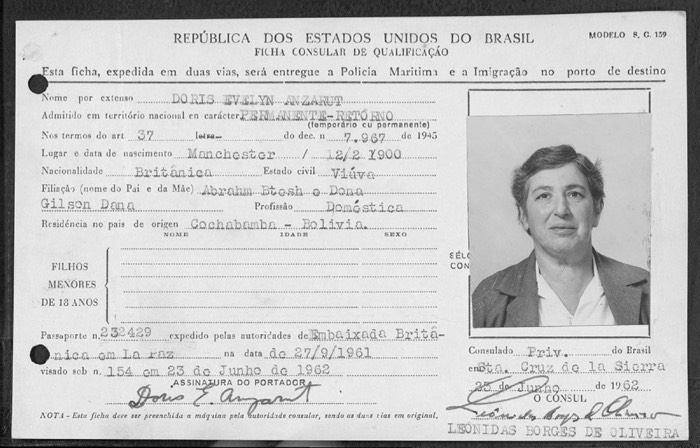 REPÚBLICA DOS ESTADOS UNIDOS DO BRASIL
MODELO S. C. 139
FICHA CONSULAR DE QUALIFICAÇÃO
Esta ficha, expedida em duas vias, será entregue a Policia Maritima e a Imigração no porto de destino
Nome por extenso DORIS EVELYN ANZARUT
Admitido em território nacional en carácter PERMANENTE-RETÔRNO
(temporário cu permanente)
Nos termos do art 37 letra do dec. n 7.967 de 1945
Lugar e data de nascimento Manchester / 12/2/1900
Nacionalidade Británica Estado civil Viúva
Filiação (nome do Pai e da Mãe) Abrahm Btesh e Dona
Gilson Dana Profissão Doméstica
Residência no país de origen Cochabamba - Bolivia.
NOME IDADE SEXO
FILHOS
MENORES
DE 18 ANOS
SÉLO
CON
Passaporte n. 232429 expedido pelas autoridades de Embaixada Britâ-
nica em La Paz na data de 27/9/1961
visado sob n. 154 em 23 de Junho de 1962
ASSINATURA DO PORTADOR
Doris E. Anzarut
NOTA - Esta ficha deve ser preenchida a máquina pela autoridade consular, sendo as duas vias em original.
Consulado Priv. do Brasil
em Sta. Cruz de la Sierra
23 de Junho 1962
O CONSUL
Leônidas Borges de Oliveira
LEÔNIDAS BORGES DE OLIVEIRA